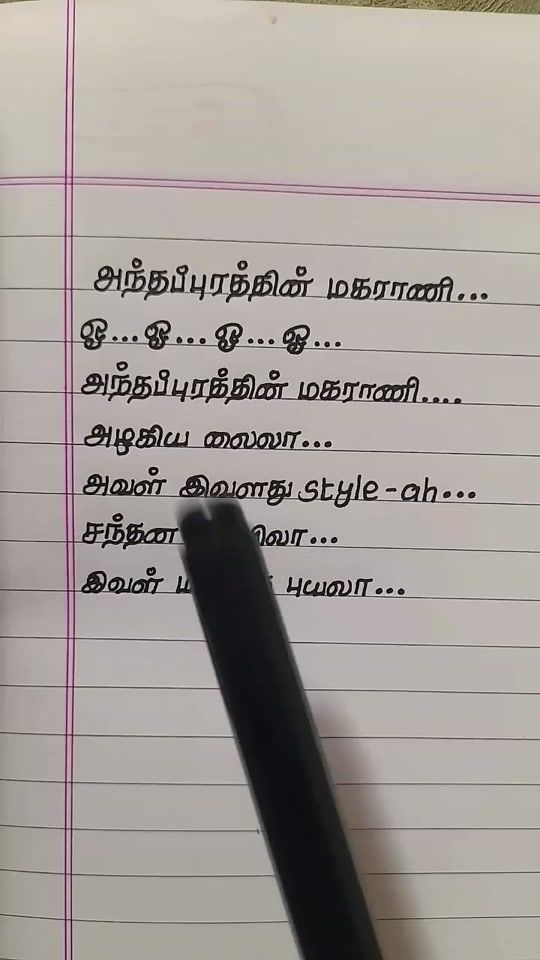 அந்தபீபுரத்தின் மகராணி...
ஓ...ஓ...ஓ...ஓ...
அந்தபீபுரத்தின் மகராணி....
அழகிய லைலா...
அவள் இவளது style-ah...
சந்தன
இவள் புயலா...